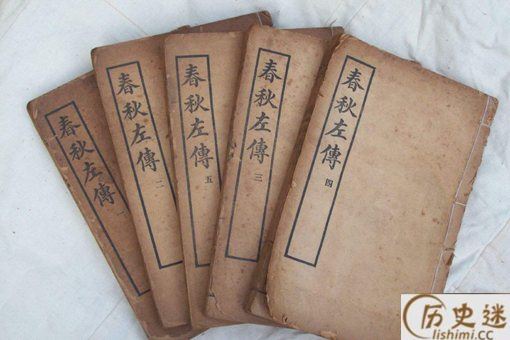 春秋左傳 一
春秋左傳 二
春秋左傳 五
春秋左傳 三
春秋左傳 四
历史迷
lishimi.cc